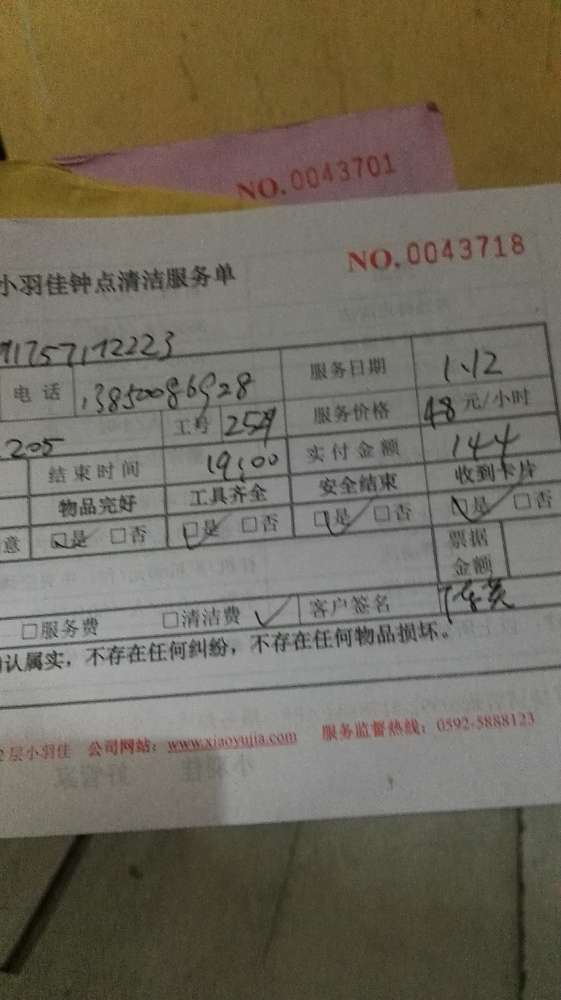 NO.0043701
NO.0043718
小羽佳钟点清洁服务单
91757112223
电话 13850086928 服务日期 1.12
205 工号 服务价格 48元/小时
结束时间 19:00 实付金额 144
物品完好 工具齐全 安全结束 收到卡片
意 □是 □否 □是 □否 □是 □否 □是 □否
票据
金额
□服务费 □清洁费 客户签名
认属实，不存在任何纠纷，不存在任何物品损坏。
2层小羽佳 公司网站：www.xiaoyujia.com 服务监督热线：0592-5888123